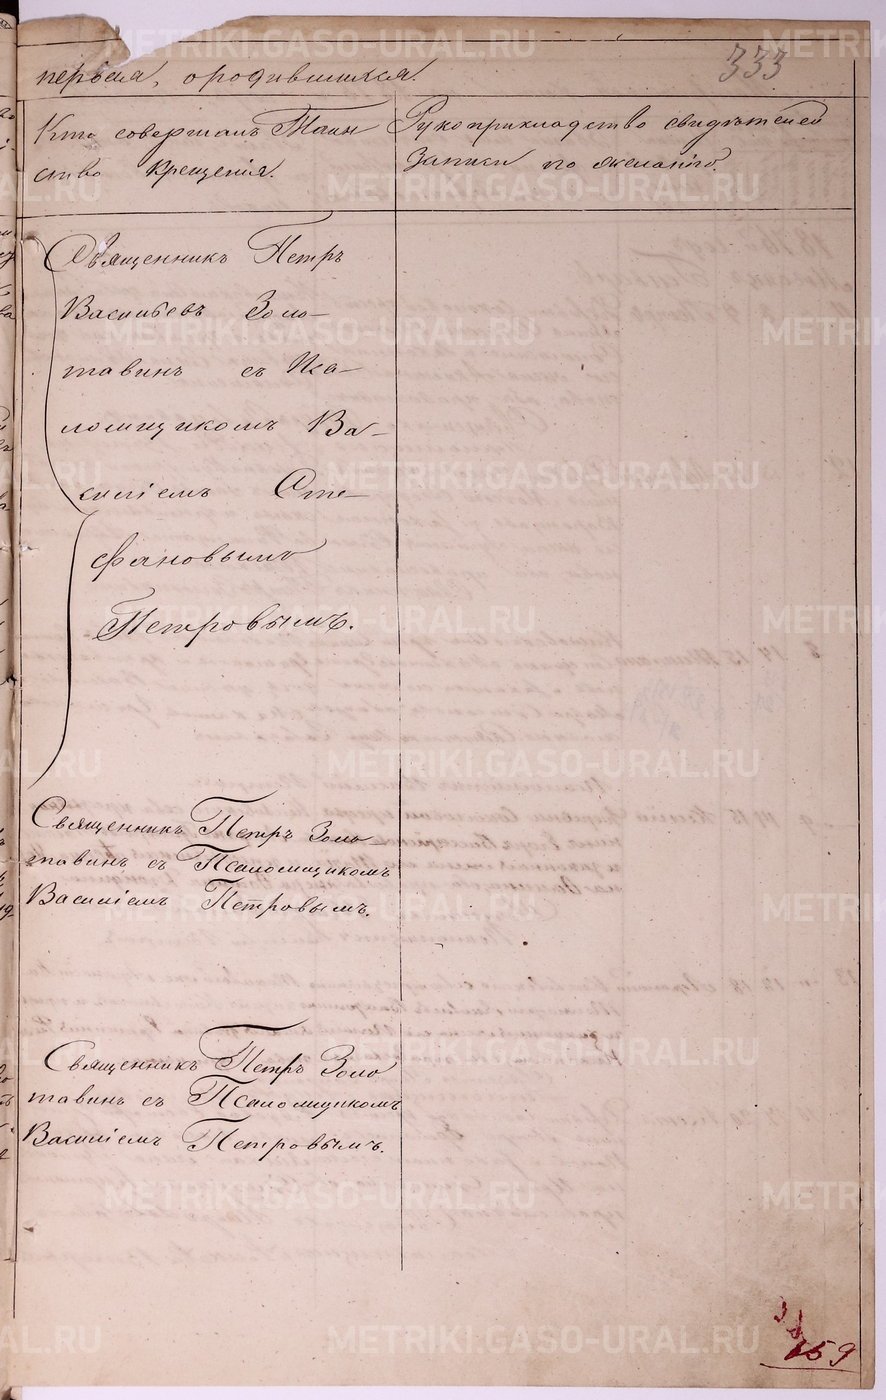 333
первая, ородившихся.
Кто совершалъ Таин
ство крещенія.
Рукоприкладство свидѣтелей
записи по желанію.
Священникъ Петръ
Васильевъ Золо-
тавинъ съ Пса-
ломщикомъ Ва-
силіемъ Сте-
фановымъ
Петровымъ.
Священникъ Петръ Золо-
тавинъ съ Псаломщикомъ
Василіемъ Петровымъ.
Священникъ Петръ Золо
тавинъ съ Псаломщикомъ
Василіемъ Петровымъ.
159
METRIKI.GASO-URAL.RU